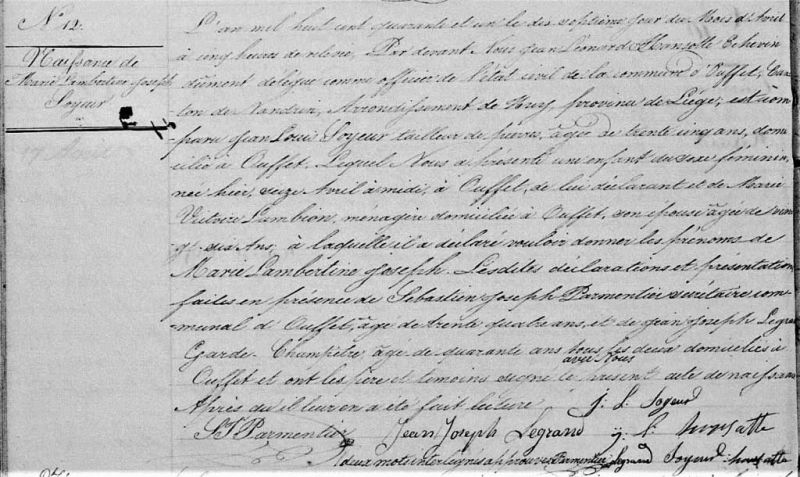 N° 12.
Naissance de
Marie Lambertine Joseph
Soyeur
L'an mil huit cent quarante et un le dix septième jour du Mois d'Avril
à cinq heures de relevée, Par devant Nous Jean Léonard Echevin
dument délégué comme officier de l'état civil de la commune d'Ouffet, Can-
ton de Nandrin, Arrondissement de Huy, province de Liége, est com-
paru Jean Louis Soyeur tailleur de pierres, âgé de trente cinq ans, domi-
cilié à Ouffet. Lequel Nous a présenté une enfant du sexe féminin,
née hier, seize Avril à midi, à Ouffet, de lui déclarant et de Marie
Victoire Lambion, ménagère domiciliée à Ouffet, son épouse âgée de vin-
gt-six Ans, à laquelle il a déclaré vouloir donner les prénoms de
Marie Lambertine Joseph. Lesdites déclarations et présentation
faites en présence de Sébastien Joseph Parmentier secrétaire com-
munal d'Ouffet, âgé de trente quatre ans, et de Jean Joseph Legrand
Garde-Champêtre âgé de quarante ans tous les deux domiciliés à
avec Nous
Ouffet et ont les père et témoins signé le présent acte de naissance
Après qu'il leur en a été fait lecture
J. L. Soyeur
SJ Parmentier Jean Joseph Legrand
deux mots interlignés approuvés Parmentier Legrand Soyeur